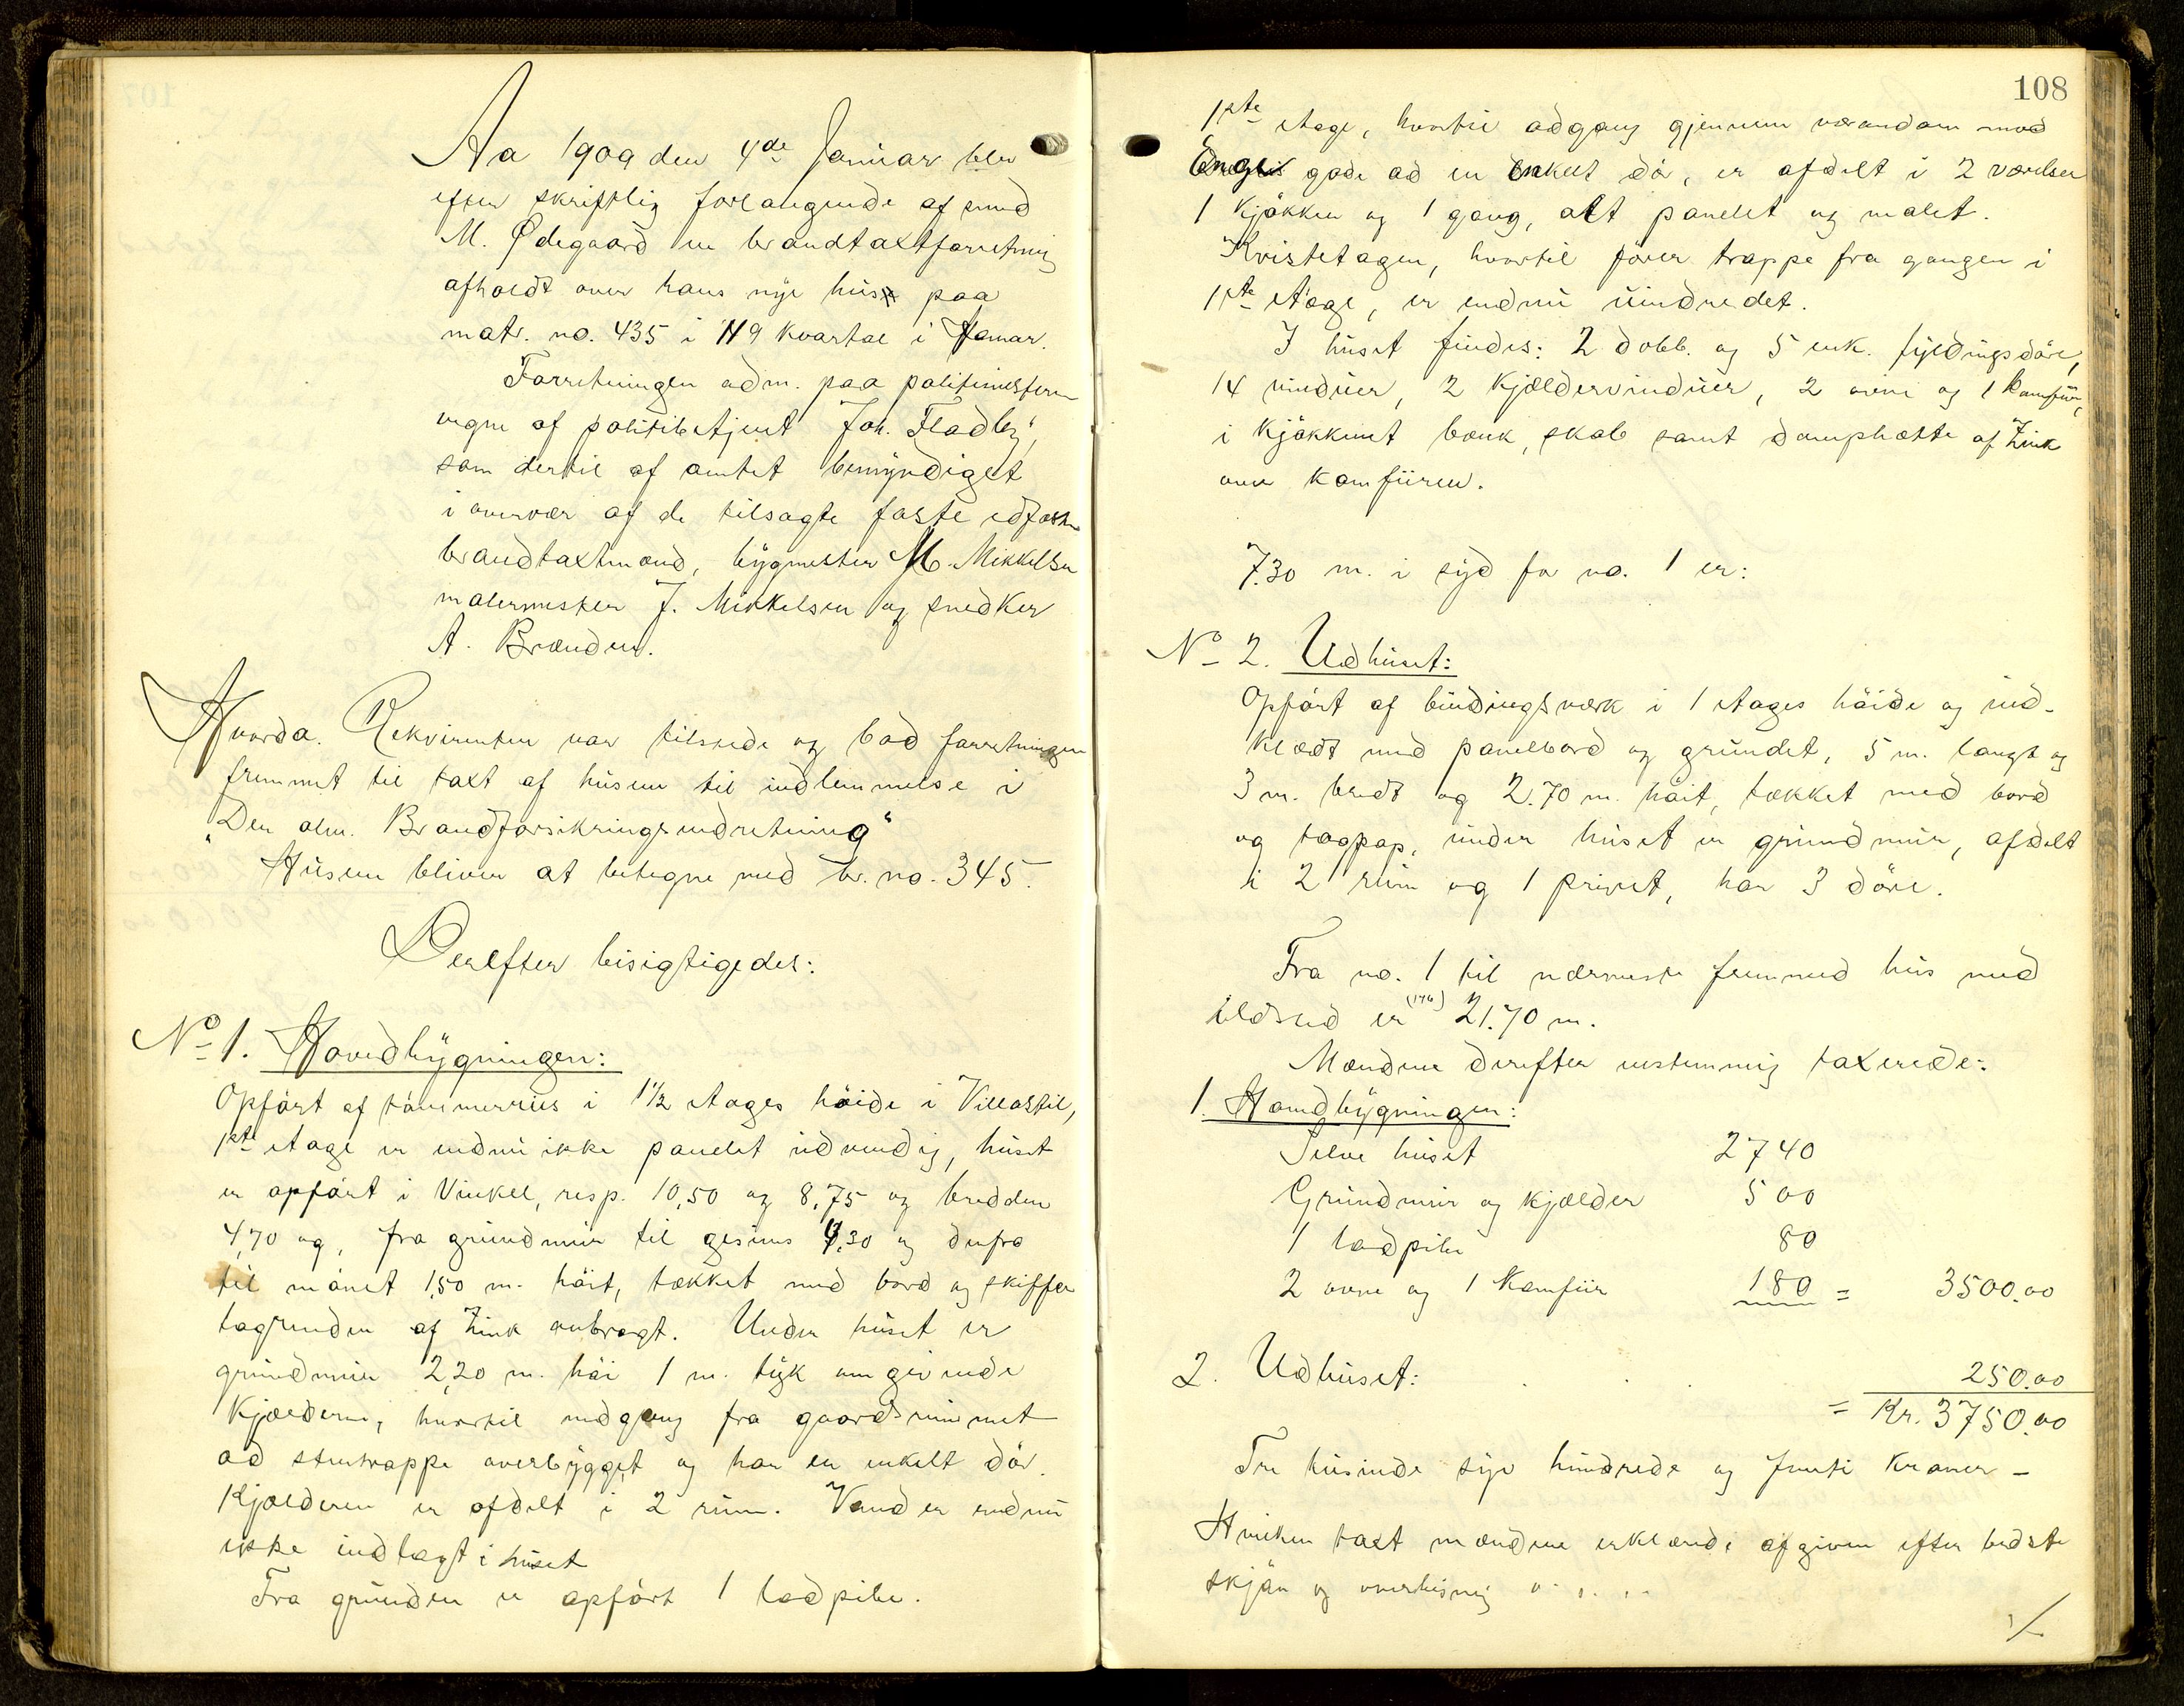 Aa 1909 den 4de Januar blev
efter skriftlig forlangende af smed
M. Ødegaard en brandtaxtforretning
afholdt over hans nye hus paa
matr. no. 435 i 119 kvartal i Hamar.
Forretningen adm. paa politimesterens
vegne af politibetjent Joh. Fladby,
som dertil af amtet bemyndiget
i overvær af de tilsagte faste edfæstede
brandtaxtmænd, bygmester M. Mikkelsen
malermester J. Mikkelsen og snedker
A. Brænden.
Hvorda. Rekvirenten var tilstede og bad forretningen
fremmet til taxt af husene til indlemmelse i
"Den alm. Brandforsikringsindretning"
Husene bliver at betegne med br. no. 345.
Derefter besigtigedes:
No 1. Hovedbygningen:
Opført af tømmerhus i 1 1/2 etages høide i Villastil,
1ste etage er endnu ikke panelet udvendig, huset
er opført i Vinkel, resp. 10,50 og 8,75 og bredden
4,70 og, fra grundmur til gesims 4,30 og derfra
til mønet 1,50 m. høit, tækket med bord og skiffer
tagrender af Zink anbragt. Under huset er
grundmur 2,20 m. høi 1 m. tyk omgivende
Kjælderen, hvortil nedgang fra gaardsrummet
ad stentrappe overbygget og har en enkelt dør.
Kjælderen er afdelt i 2 rum. Vand er endnu
ikke indlagt i huset
Fra grunden er opført 1 ladpibe.
108
1ste etage, hvortil adgang gjennem verandaen mod
Enge gade ad en enkelt dør, er afdelt i 2 værelser
1 Kjøkken og 1 gang, alt panelet og malet.
Kvistetagen, hvortil fører trappe fra gangen i
1ste etage, er endnu uindredet.
I huset findes: 2 dobb. og 5 enk. fyldingsdøre,
14 vinduer, 2 Kjældervinduer, 2 ovne og 1 komfur,
i Kjøkkenet bænk, skab samt damphætte af Zink
over komfuren.
7.30 m. i syd for no. 1 er:
No 2. Udhuset:
Opført af bindingsværk i 1 etages høide og ind-
klædt med panelbord og grundet, 5 m. langt og
3 m. bredt og 2.70 m. høit, tækket med bord
og tagpap, under huset er grundmur, afdelt
i 2 rum og 1 privet, har 3 døre.
Fra no. 1 til nærmeste fremmed hus med
ildsted er (176) 21.70 m.
Mændene derefter enstemmig taxerede:
1. Hovedbygningen:
Selve huset 2740
Grundmur og kjælder 500
1 ladpibe 80
2 ovne og 1 Komfur 180 = 3500.00
2. Udhuset: . . . 250.00
= Kr. 3750.00
Tre tusinde syv hundrede og femti Kroner –
Hvilken taxt mændene erklærede afgiven efter bedste
skjøn og overbevisning